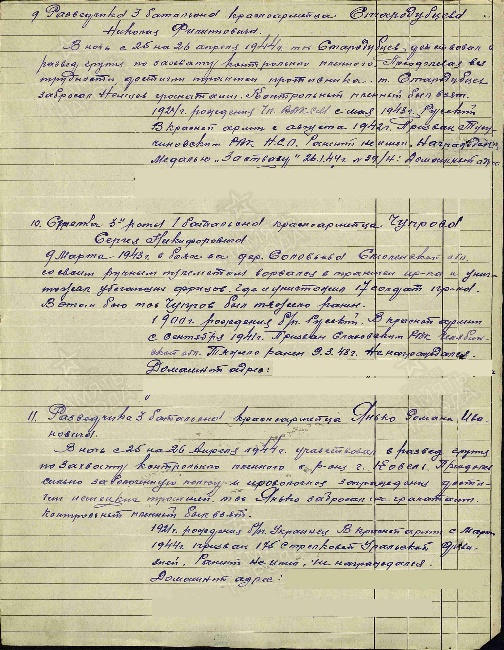 9. Разведчика 3 батальона красноармейца Стародубцева
Николая Филипповича.
В ночь с 25 на 26 апреля 1944 г. т-щ Стародубцев, действовал в
развед группе по захвату контрольного пленного. Преодолевая все
трудности достигли траншеи противника. т. Стародубцев
забросал Немцев гранатами. Контрольный пленный был взят.
1924 г. рождения Чл. ВЛКСМ с мая 1943 г. Русский
В красной армии с августа 1942 г. Призван
РВК Н.С.О. Ранений не имел. Награжден
Медалью "За отвагу" 26.1.44 г № 39/н: Домашний адрес
10. Стрелка 3й роты 1 батальона красноармейца Чупрова
Сергея Никифоровича
9 Марта 1943 г. в боях за дер. Соловьево Смоленской обл.
со своим ручным пулеметом ворвался в траншеи пр-ка и унич-
тожал убегающих фрицев, где и уничтожил 17 солдат пр-ка.
В этом бою тов Чупров был тяжело ранен.
1900 г. рождения б/п. Русский. В красной армии
с Сентября 1941 г. Призван РВК Челябин-
ской обл. Тяжело ранен 9.3.43 г. Не награждался.
Домашний адрес:
11. Разведчика 3 батальона красноармейца Янько Романа Ива-
новича.
В ночь с 25 на 26 Апреля 1944 г. участвовал в развед группе
по захвату контрольного пленного в р-оне г. Ковель. Преодоле
сильно заболоченную пойму и проволочное заграждение достиг-
ли немецких траншей. тов Янько забросал их гранатами.
Контрольный пленный был взят.
1921 г. рождения б/п. Украинец В красной армии с Марта
1944 г призван 175 Стрелковой Уральской Диви-
зией. Ранений не имел, не награждался.
Домашний адрес: